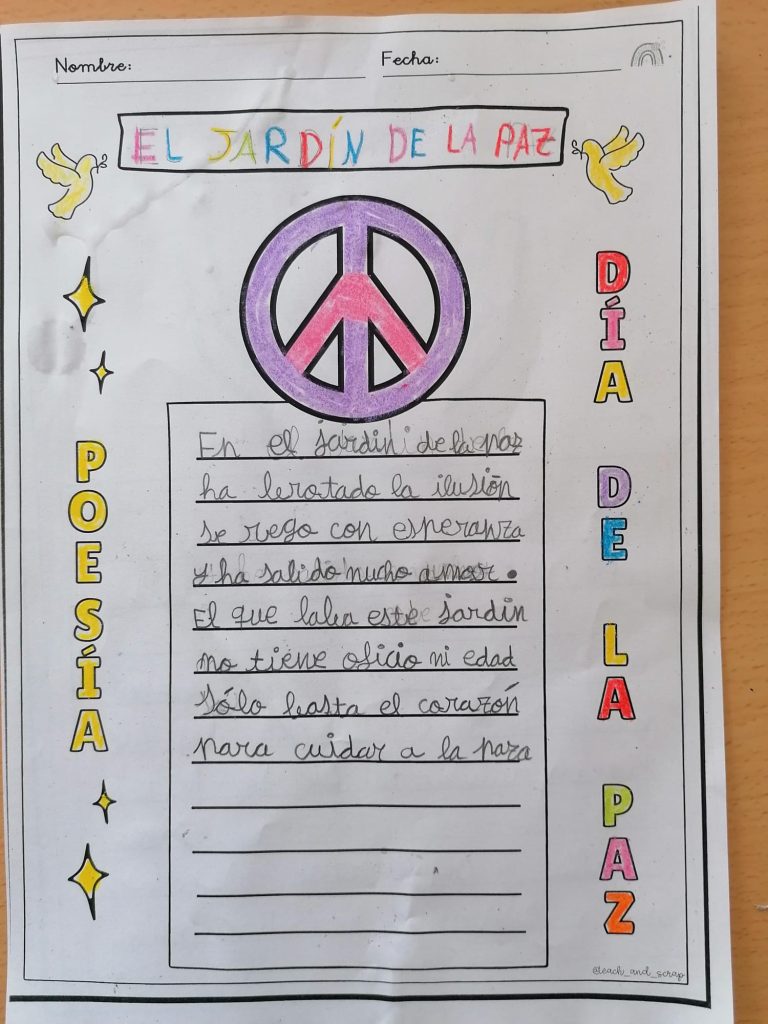 Nombre:
Fecha:
EL JARDÍN DE LA PAZ
POESÍA
En el jardin de la paz
ha lerotado la ilusión
se rego con esperanza
y ha salido mucho amor.
El que labra este jardin
no tiene oficio ni edad
Sólo basta el corazón
para cuidar a la paza
DÍA DE LA PAZ
@teach_and_scrap